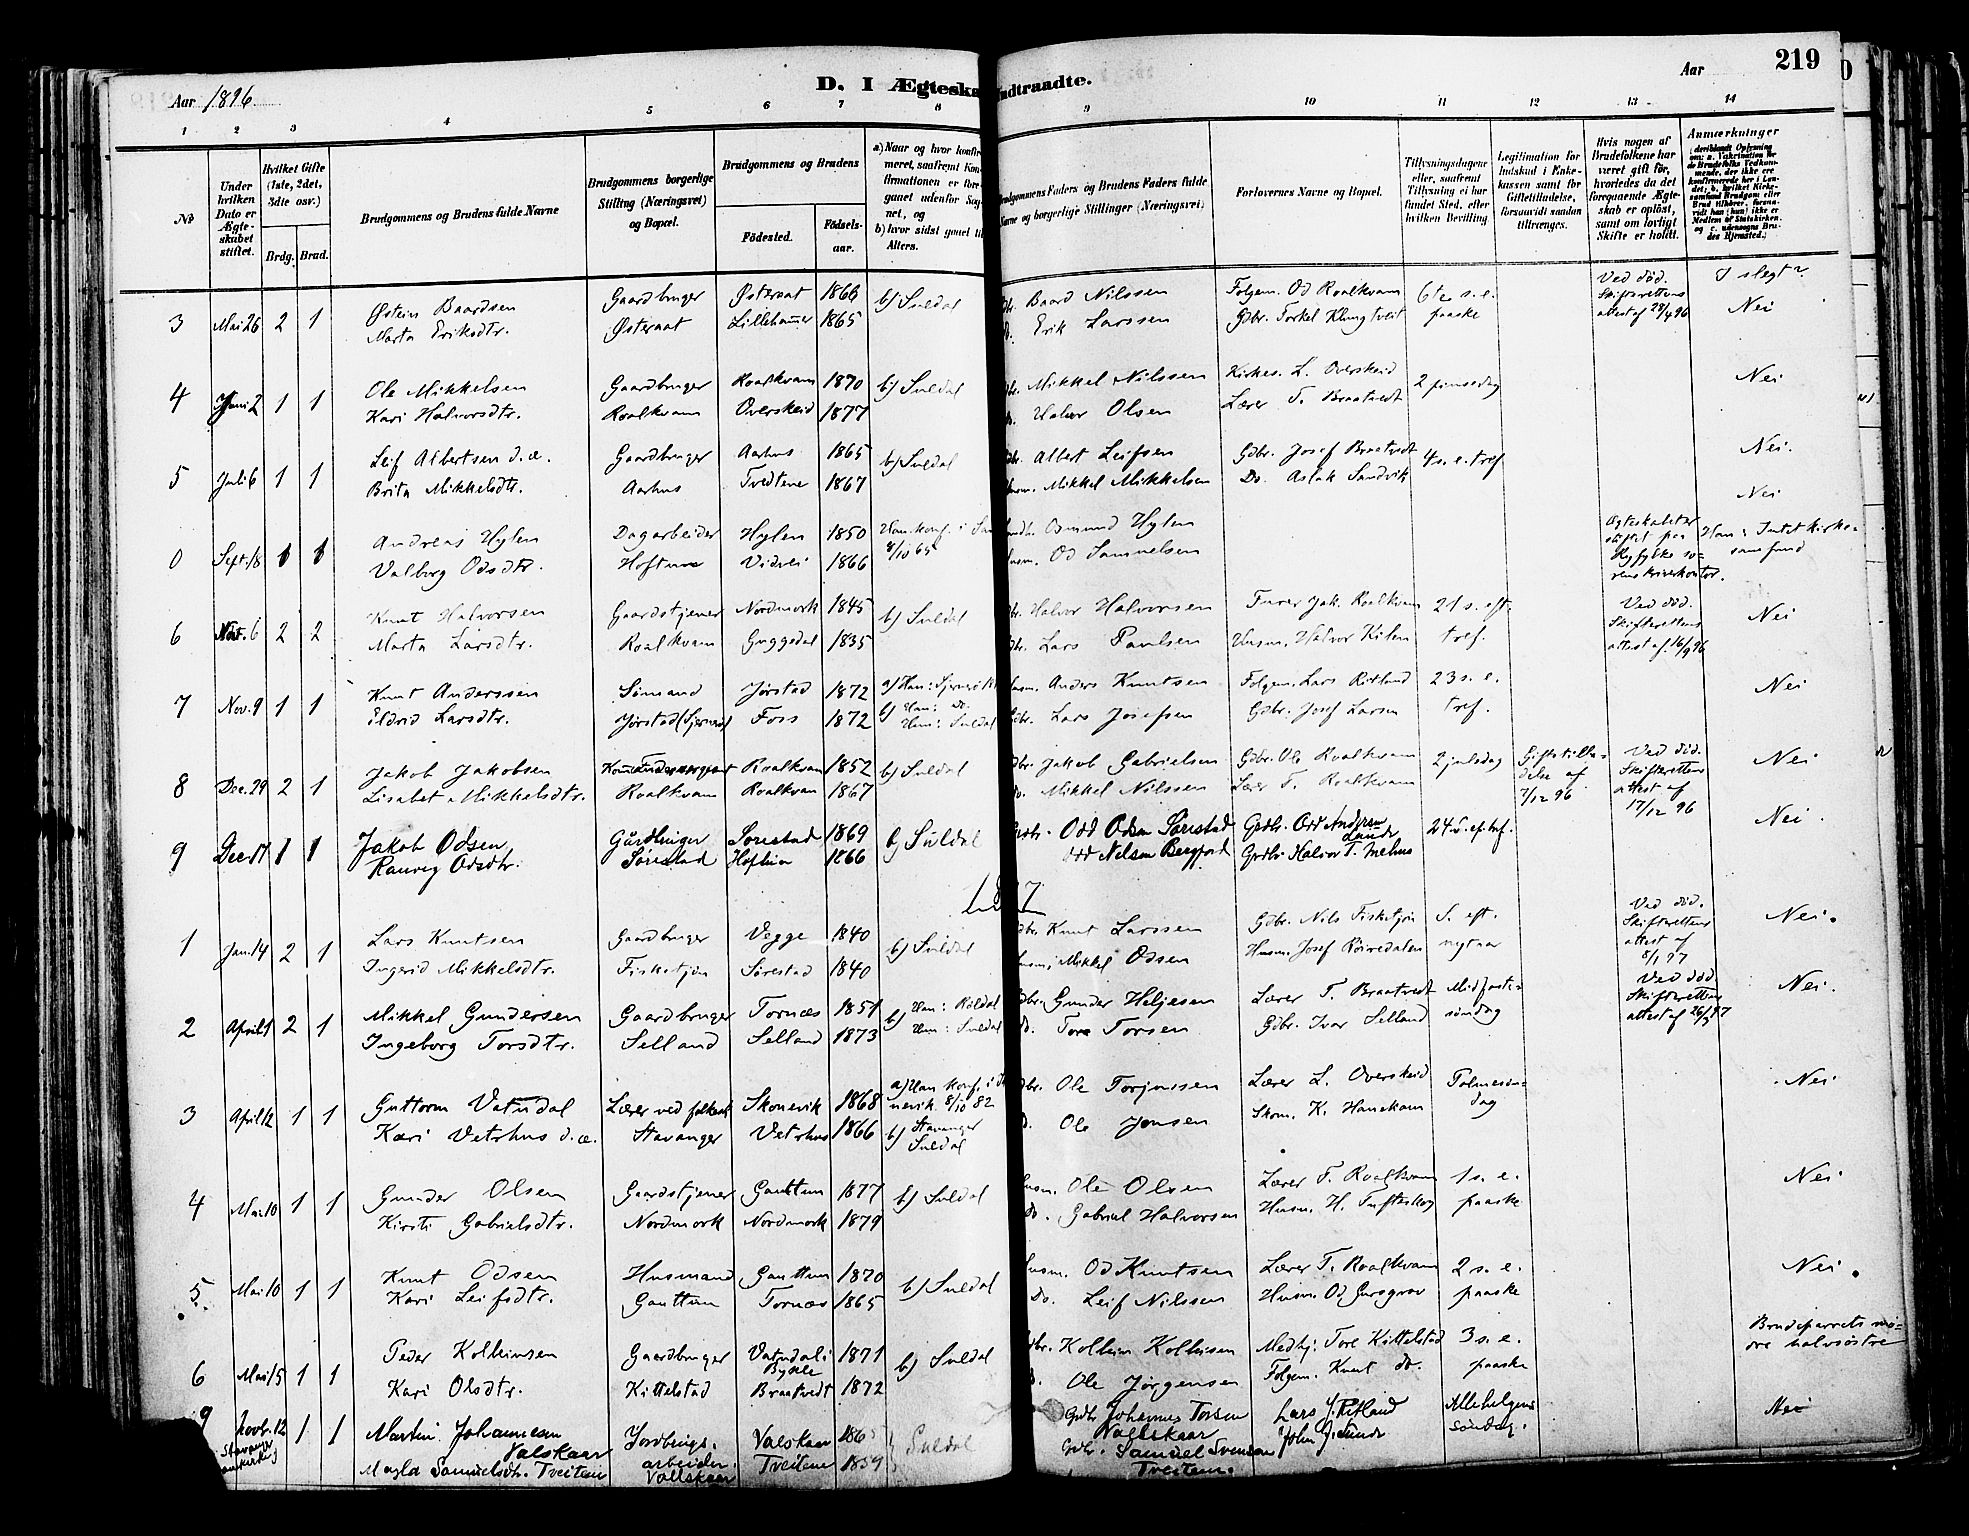 Aar 1896.
D. I Ægteska
ndtraadte.
Aar
219
1 2 3 4 5 6 7 8 9 10 11 12 13 14
No
Under hvilken Dato er Ægteskabet stiftet.
Hvilket Gifte (1ste, 2det, 3die osv.)
Brdg. Brud.
Brudgommens og Brudens fulde Navne
Brudgommens borgerlige Stilling (Næringsvei) og Bopæl.
Brudgommens og Brudens
Fødested.
Fødselsaar.
a) Naar og hvor konfirmeret, saafremt Konfirmationen er foregaaet udenfor Sognet, og
b) hvor sidst gaaet til Alters.
Brudgommens Faders og Brudens Faders fulde Navne og borgerlige Stillinger (Næringsvei)
Forlovernes Navne og Bopæl.
Tillysningsdagene eller, saafremt Tillysning ei har fundet Sted, efter hvilken Bevilling
Legitimation for Indskud i Enkekassen samt for Giftetilladelse, forsaavidt saadan tiltrænges.
Hvis nogen af Brudefolkene har været gift før, hvorledes da det foregaaende Ægteskab er opløst, samt om lovligt Skifte er holdt.
Anmærkninger
3 Mai 26 2 1 Østein Baardsen Gaardbruger Østeraat 1866 b) Suldal Baard Nilssen Folgem. Od Roalkvam 6te s. e. Ved død. I slegt?
Marta Eriksdtr. Østeraat Lillehamer 1865 Erik Larssen Gdbr. Torkel Klungtveit paaske Skifterettens attest af 29/4 96 Nei
4 Juni 2 1 1 Ole Mikkelsen Gaardbruger Roalkvam 1870 b) Suldal Mikkel Nilssen Kirkes. L. Overskeid 2 pinsedag Nei
Kari Halvorsdtr. Roalkvam Overskeid 1877 do. Halvor Olsen Lærer T. Braatvedt
5 Juli 6 1 1 Leif Albertsen d. æ. Gaardbruger Aarhus 1865 b) Suldal Albert Leifsen Gdbr. Josef Braatvedt 4 s. e. tref. Nei.
Brita Mikkelsdtr. Aarhus Tvedtene 1867 Husm. Mikkel Mikkelsen Do. Aslak Sandvik Nei
0 Sept. 18 1 1 Andreas Hylen Dagarbeider Hylen 1850 Han konf. i 8/10 65 Osmund Hylen Ægteskabet er stiftet paa Ryfylke sorenskriverkontor. Han: Intet kirkesamfund
Valborg Odsdtr. Hoftun Vidvei 1866 Husm. Od Samuelsen
6 Nov. 6 2 2 Knut Halvorsen Gaardstjener Nordmork 1845 b) Suldal Halvor Halvorsen Jak. Roalkvam 21 s. eft. Ved død. Nei
Marta Larsdtr. Roalkvam Guggedal 1835 Lars Paulsen Husm. Halvor Kilen tref. Skifterettens attest af 16/9 96
7 Nov. 9 1 1 Knut Anderssen Sømand Jørstad 1872 a) Han: Sjernerø b) Han: do. Hun: Suldal Husm. Anders Knutsen Folgem. Lars Ritland 23 s. e. Nei
Eldrid Larsdtr. Jørstad (Sjernerø) Foss 1872 Lars Josefsen Gdbr. Josef Larsen tref.
8 Dec. 29 2 1 Jakob Jakobsen Roalkvam 1852 b) Suldal Jakob Gabrielsen Gdbr. Ole Roalkvam 2 juledag Giftetilladelse af 7/12 96 Ved død. Skifterettens attest af 17/12 96 Nei
Lisabet Mikkelsdtr. Roalkvam Roalkvam 1867 do. Mikkel Nilssen Lærer T. Roalkvam
9 Dec. 17 1 1 Jakob Odsen Gårdbruger Sørestad 1869 b) Suldal Grdbr. Odd Odsen Sørestad Grdbr. Odd Andersen Sunde 24 s. ef. tref. Nei
Ranveig Odsdtr. Sørestad Hoftun 1866 Odd Nelsen Bergfjord Grdbr. Halvor T. Mehus
1897
1 Jan. 14 2 1 Lars Knutsen Gaardbruger Vegge 1840 b) Suldal Knut Larssen Gdbr. Nils Fisketjøn S. eft. Ved død. Skifterettens attest af 8/1 97 Nei.
Ingerid Mikkelsdtr. Fisketjøn Sørestad 1840 Husm. Mikkel Odsen Husm. Josef Røiredalen nytaar
2 April 1 2 1 Mikkel Gundersen Gaardbruger Tornæs 1851 b) Han: Røldal Hun: Suldal Gunder Heljesen Lærer T. Braatvedt Midfastesøndag Ved død. Skifterettens attest af 26/3 97 Nei.
Ingeborg Torsdtr. Selland Selland 1873 do. Tore Torsen Gdbr. Ivar Selland
3 April 12 1 1 Guttorm Vatndal Lærer ved folkesk. Skonevik 1868 a) Han konf. i Skonevik 8/10 82 b) Stavanger Suldal Ole Torjussen Lærer L. Overskeid Palmesøndag Nei
Kari Vetrhus d. æ. Stavanger Vetrhus 1866 Ole Jonsen Skom. K. Hanekam
4 Mai 10 1 1 Gunder Olsen Gaardstjener Gauttun 1877 b) Suldal Husm. Ole Olsen Lærer T. Roalkvam 1 s. e. Nei
Kirsti Gabrielsdtr. Nordmork Nordmork 1879 do. Gabriel Halvorsen Husm. H. Tufteskog paaske
5 Mai 10 1 1 Knut Odsen Husmand Gauttun 1870 b) Suldal Husm. Od Knutsen Lærer T. Roalkvam 2 s. e. Nei.
Kari Leifsdtr. Gauttun Tornæs 1865 Do. Leif Nilssen Husm. Od Gursgrov paaske
6 Mai 15 1 1 Peder Kolbeinsen Gaardbruger Vatndal i Bykle 1871 b) Suldal Kolbein Kolbeinsen Medhj. Tore Kittelstad 3 s. e. Brudeparrets mødre halvsøstre
Kari Olsdtr. Kittelstad Braatvedt 1872 Ole Jørgensen Folgem. Knut do. paaske
9 Novbr. 12 1 1 Martin Johannesen Valskaar Jordbrugsarbeider. Valskaar 186 Suldal Grdbr. Johannes Torsen Valskaar Lars J. Ritland Allehelgens søndag. Nei
Magla Samuelsdtr. Tveitene Vallskaar Tveitene 1859 Grdbr. Samuel Svensen Tveitene. John J. Sunde